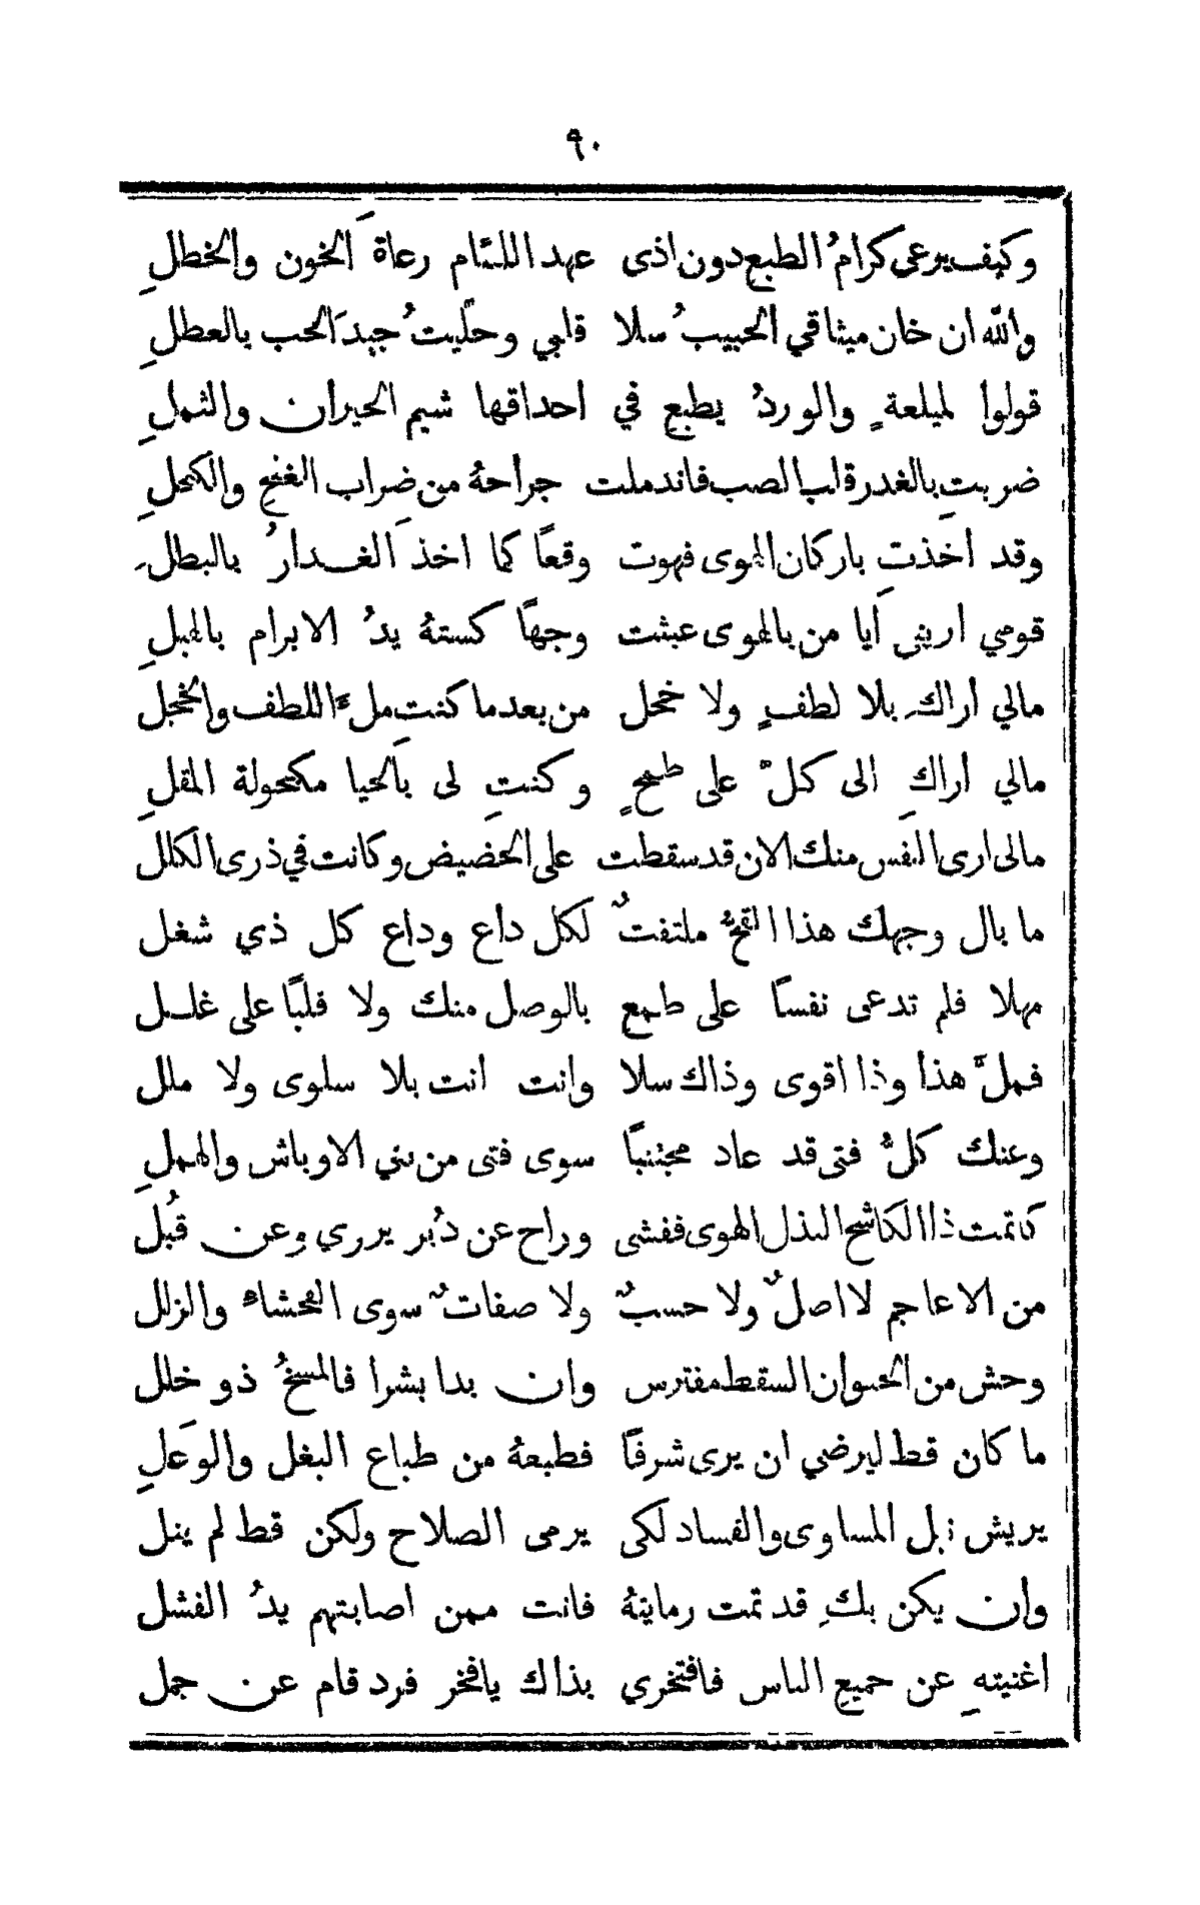 ٩٠
وكيف يرعى كرامُ الطبع دون اذى عهد اللئام رعاةَ الخون والخطلِ
والله ان خان ميثاقي الحبيبُ سلا قلبي وحلّيتُ جيدَ الحب بالعطلِ
قولوا لميلعةٍ والوردُ يطبع في احداقها شيم الحيران والثملِ
ضربتِ بالغدر قلب الصب فاندملت جراحهُ من ضراب الغنج والكحلِ
وقد اخذتِ باركان الهوى فهوت وقعًا كما اخذَ الغدارُ بالبطلِ
قومي اريني أيا من بالهوى عبثت وجهًا كستهُ يدُ الابرام بالهبلِ
مالي أراكِ بلا لطفٍ ولا خجل من بعد ما كنتِ ملءَ اللطف والخجل
مالي أراكِ الى كلٍّ على طمحٍ وكنتِ لى بالحيا مكحولة المقلِ
مالى ارى النفس منك الان قد سقطت على الحضيض وكانت في ذرى الكلل
ما بال وجهك هذا القحُّ ملتفتٌ لكل داع وداع كل ذي شغل
مهلا فلم تدعى نفسًا على طمع بالوصل منك ولا قلبًا على غلل
فملَّ هذا وذا اقوى وذاك سلا وانت انت بلا سلوى ولا ملل
وعنك كلُّ فتى قد عاد مجتنبًا سوى فتى من بني الاوباش والهملِ
كاتمت ذا الكاشح النذل الهوى ففشى وراح عن دُبر يرري وعن قُبُل
من الاعاجم لا اصلٌ ولا حسبٌ ولا صفاتٌ سوى الفحشاء والزلل
وحش من الحيوان السقط مفترس وان بدا بشرا فالمسخُ ذو خلل
ما كان قط ليرضي ان يرى شرفًا فطبعهُ من طباع البغل والوَعَلِ
يريش نبل المساوى والفساد لكى يرمى الصلاح ولكن قط لم ينل
وان يكن بكِ قد تمت رمايتهُ فانت ممن اصابتهم يدُ الفشل
اغنيتهِ عن جميع الناس فافتخري بذاك يا فخر فرد قام عن جمل